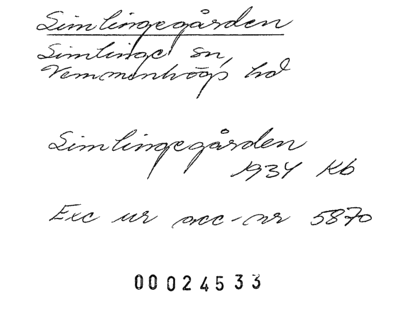 Simlingegården
Simlinge sn,
Vemmenhögs hd
Simlingegården
1934 Kb
Exc ur acc-nr 5870
00024533